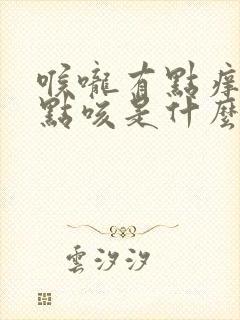 喉嚨有點痒
點咳是什麼
雲汐汐